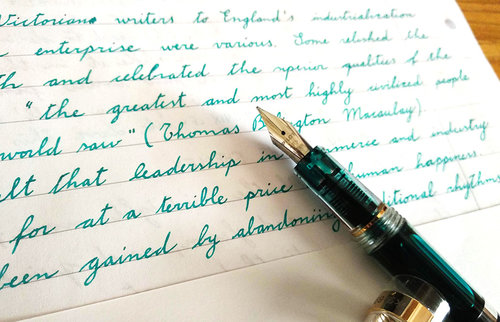 Victorians writers to England's industrialization
enterprise were various. Some relished the
and celebrated the superior qualities of the
"the greatest and most highly civilized people
world saw" (Thomas Babington Macaulay).
that leadership in commerce and industry
for at a terrible price human happiness
been gained by abandoning traditional rhythms